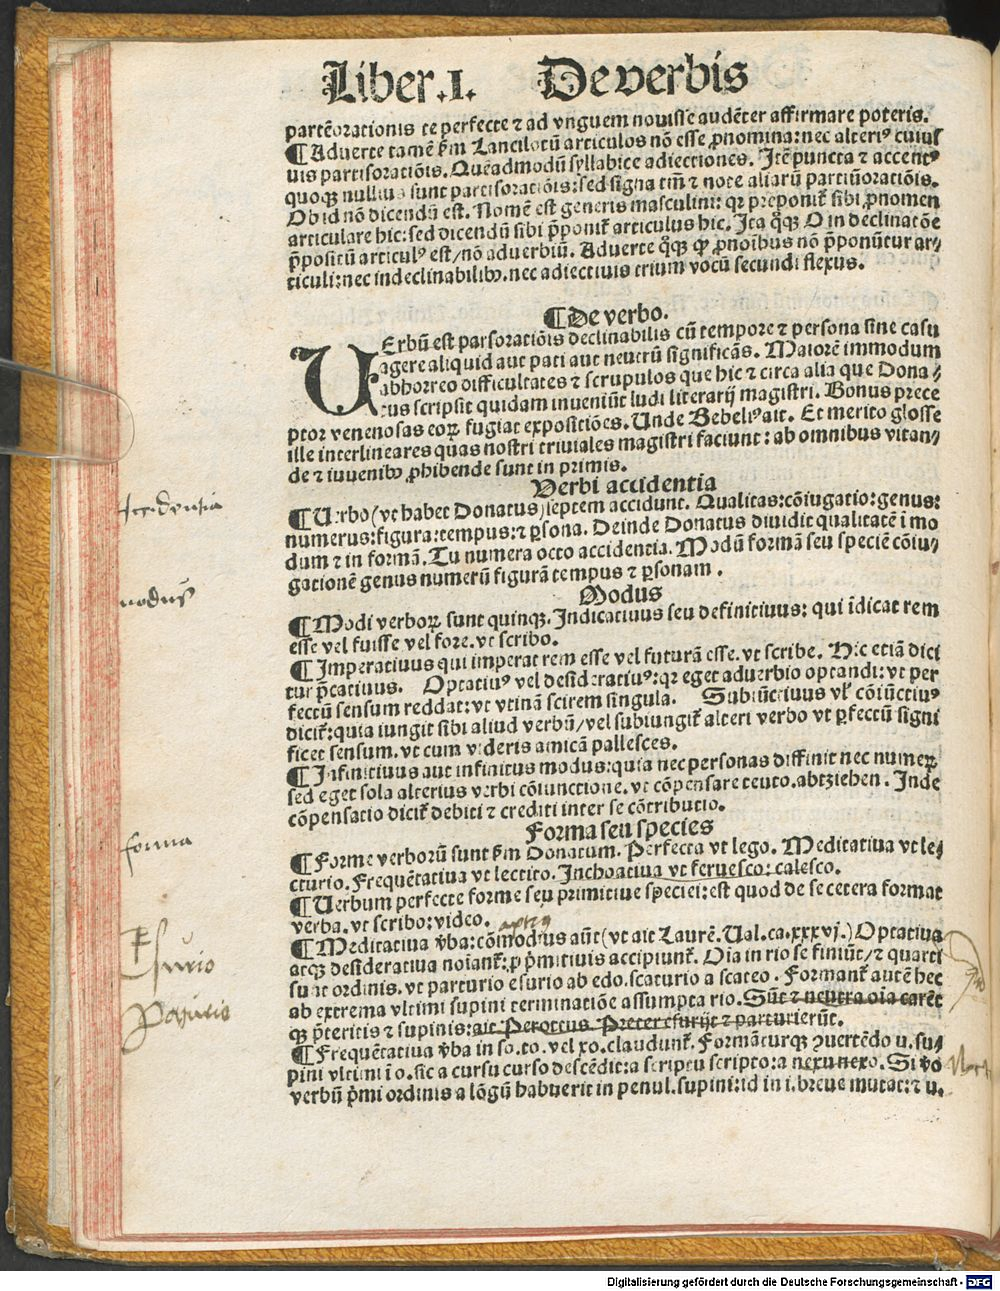 Liber .I. De verbis
partēorationis te perfecte ⁊ ad vnguem nouisse audēter affirmare poteris.
¶ Aduerte tamē ẜm Lancilotū articulos nō esse ꝓnomina: nec alteriꝰ cuius
uis partisoratiōis. Quēadmodū syllabice adiectiones. Itē puncta ⁊ accentꝰ
quoqꝫ nullius sunt partisoratiōis: sed signa tm̄ ⁊ note aliarū partiūoratiōis.
Ob id nō dicendū est. Nomē est generis masculini: qꝛ preponit̄ sibi ꝓnomen
articulare hic: sed dicendū sibi p̄ponit̄ articulus hic. Ita q̊qꝫ O in declinatōe
p̄positū articulꝰ est/nō aduerbiū. Aduerte q̊qꝫ ꝙ ꝓnoībus nō p̄ponūtur ar⸗
ticuli: nec indeclinabilibꝫ. nec adiectiuis trium vocū secundi flexus.
¶ De verbo.
VErbū est parsoratiōis declinabilis cū tempore ⁊ persona sine casu
agere aliquid aut pati aut neutrū significās. Maiorē immodum
abhorreo difficultates ⁊ scrupulos que hic ⁊ circa alia que Dona⸗
tus scripsit quidam inueniūt ludi literarij magistri. Bonus prece
ptor venenosas eoꝝ fugiat expositiōes. Unde Bebeliꝰ ait. Et merito glosse
ille interlineares quas nostri triuiales magistri faciunt: ab omnibus vitan⸗
de ⁊ iuuenibꝫ ꝓhibende sunt in primis.
Verbi accidentia
Accidentia
¶ Uerbo (vt habet Donatus) septem accidunt. Qualitas: cōiugatio: genus:
numerus: figura: tempus: ⁊ ꝑsona. Deinde Donatus diuidit qualitatē ī mo
dum ⁊ in formā. Tu numera octo accidentia. Modū formā seu speciē cōiu⸗
gationē genus numerū figurā tempus ⁊ ꝑsonam.
Modus
modus
¶ Modi verboꝝ sunt quinqꝫ. Indicatiuus seu definitiuus: qui īdicat rem
esse vel fuisse vel fore. vt scribo.
¶ Imperatiuus qui imperat rem esse vel futurā esse. vt scribe. Hic etiā dici
tur p̄catiuus. Optatiuꝰ vel desideratiuꝰ: qꝛ eget aduerbio optandi: vt per
fectū sensum reddat: vt vtinā scirem singula. Subiūctiuus vl̕ cōiūctiuꝰ
dicit̄: quia iungit sibi aliud verbū/vel subiungit̄ alteri verbo vt ꝑfectū signi
ficet sensum. vt cum videris amicā pallesces.
¶ Infinitiuus aut infinitus modus: quia nec personas diffinit nec numeꝝ
sed eget sola alterius verbi cōiunctione. vt cōpensare teuto. abtziehen. Inde
cōpensatio dicit̄ debiti ⁊ crediti inter se cōtributio.
Forma seu species
forma
¶ Forme verborū sunt ẜm Donatum. Perfecta vt lego. Meditatiua vt le⸗
cturio. Frequētatiua vt lectito. Inchoatiua vt feruesco: calesco.
¶ Uerbum perfecte forme seu primitiue speciei: est quod de se cetera format
verba. vt scribo: video.
¶ Meditatiua v̄ba: cōmodius aūt (vt ait Laurē. Ual. ca. xxxvj.) Optatiua
atqꝫ desideratiua noīant̄: ꝓ p̄mitiuis accipiunt̄. Oīa in rio se finiūt/⁊ quarti
sunt ordinis. vt parturio esurio ab edo. scaturio a scateo. Formant̄ autē hec
ab extrema vltimi supini terminatiōe assumpta rio. Sūt ⁊ neutra oīa carēt
qꝫ p̄teritis ⁊ supinis: ait Perottus. Preter esurijt ⁊ parturierūt.
Esurio
Parturio
¶ Frequētatiua v̄ba in so. to. vel xo. claudunt̄. Formāturqꝫ ꝯuertēdo u. su⸗
pini vltimi ī o. sic a cursu curso descēdit: a scriptu scripto: a nexu nexo. Si v̊o
verbū p̄mi ordinis a lōgū habuerit in penul. supini: id in i. breue mutat: ⁊ u.
Digitalisierung gefördert durch die Deutsche Forschungsgemeinschaft - DFG